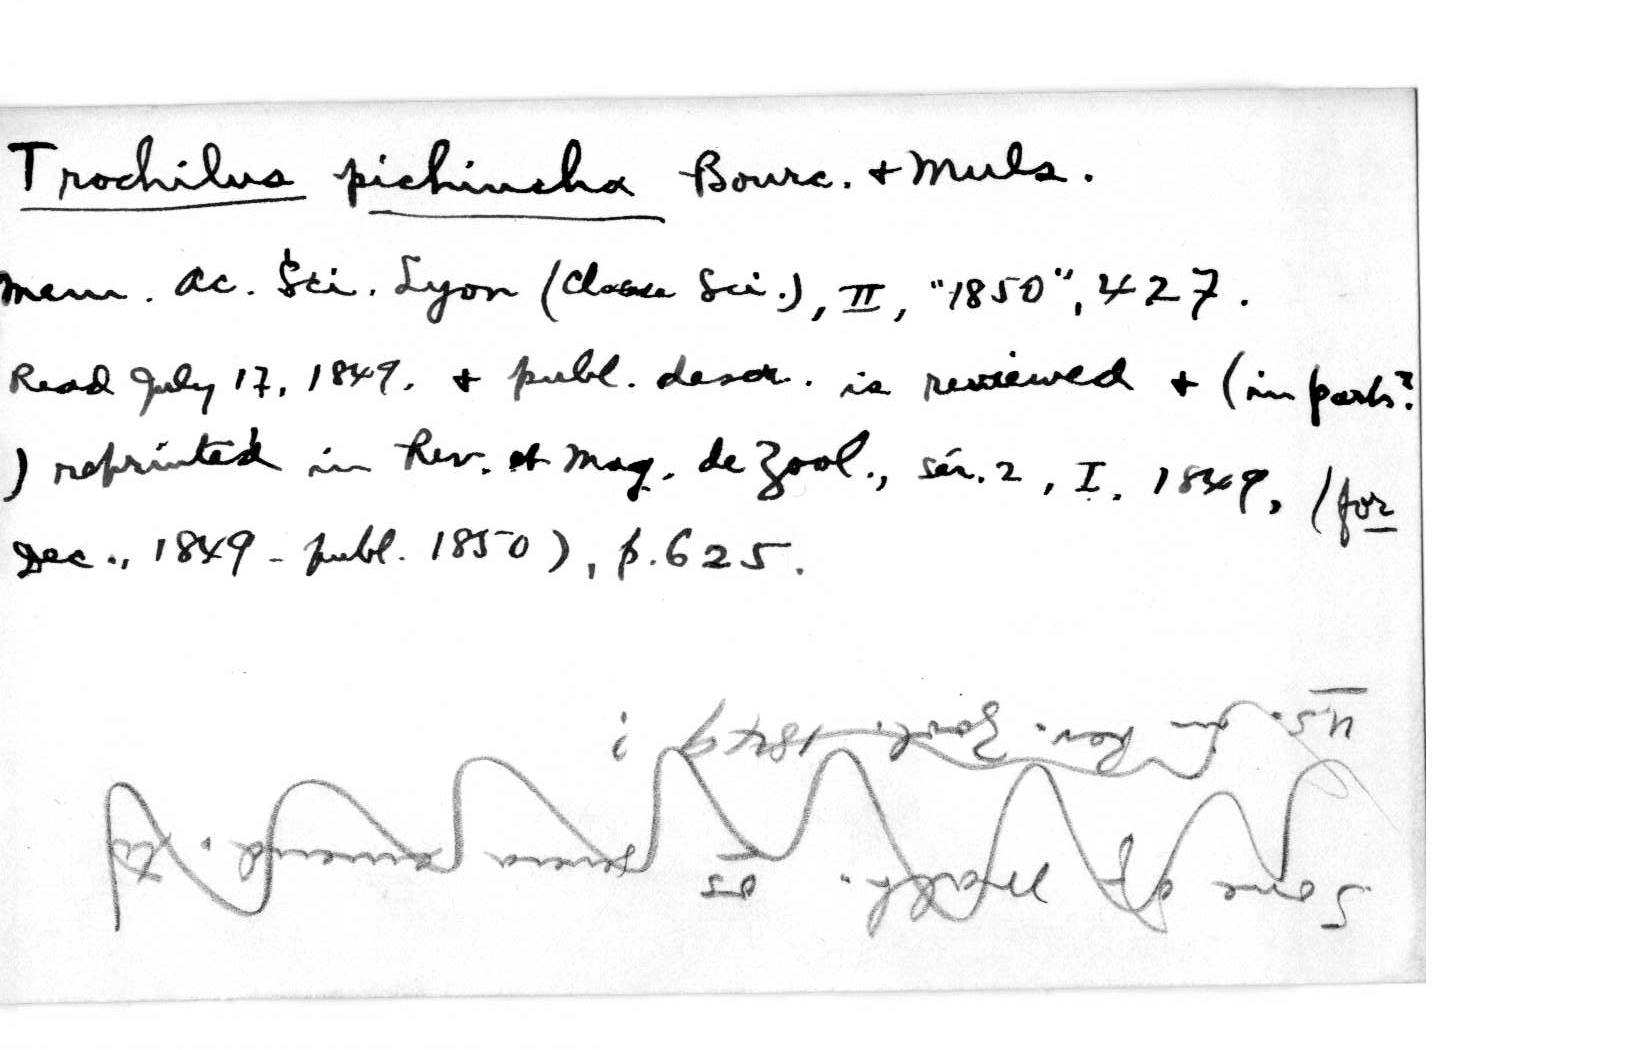 Trochilus pichincha Bourc. + Muls.
Mem. Ac. Sci. Lyon (Classe Sci.), II, "1850", 427.
Read July 17, 1849. + publ. descr. is reviewed + (in part?
) reprinted in Rev. et Mag. de Zool., sér. 2, I, 1849, (for
Dec., 1849 - publ. 1850), p. 625.
Same of
in Rev. Zool. 1849 ?